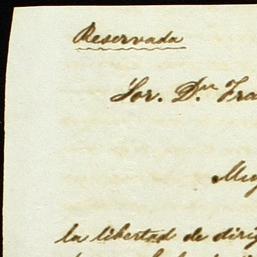 Reservada
Sor. Dn. Fra
Muy
la libertad de dirig